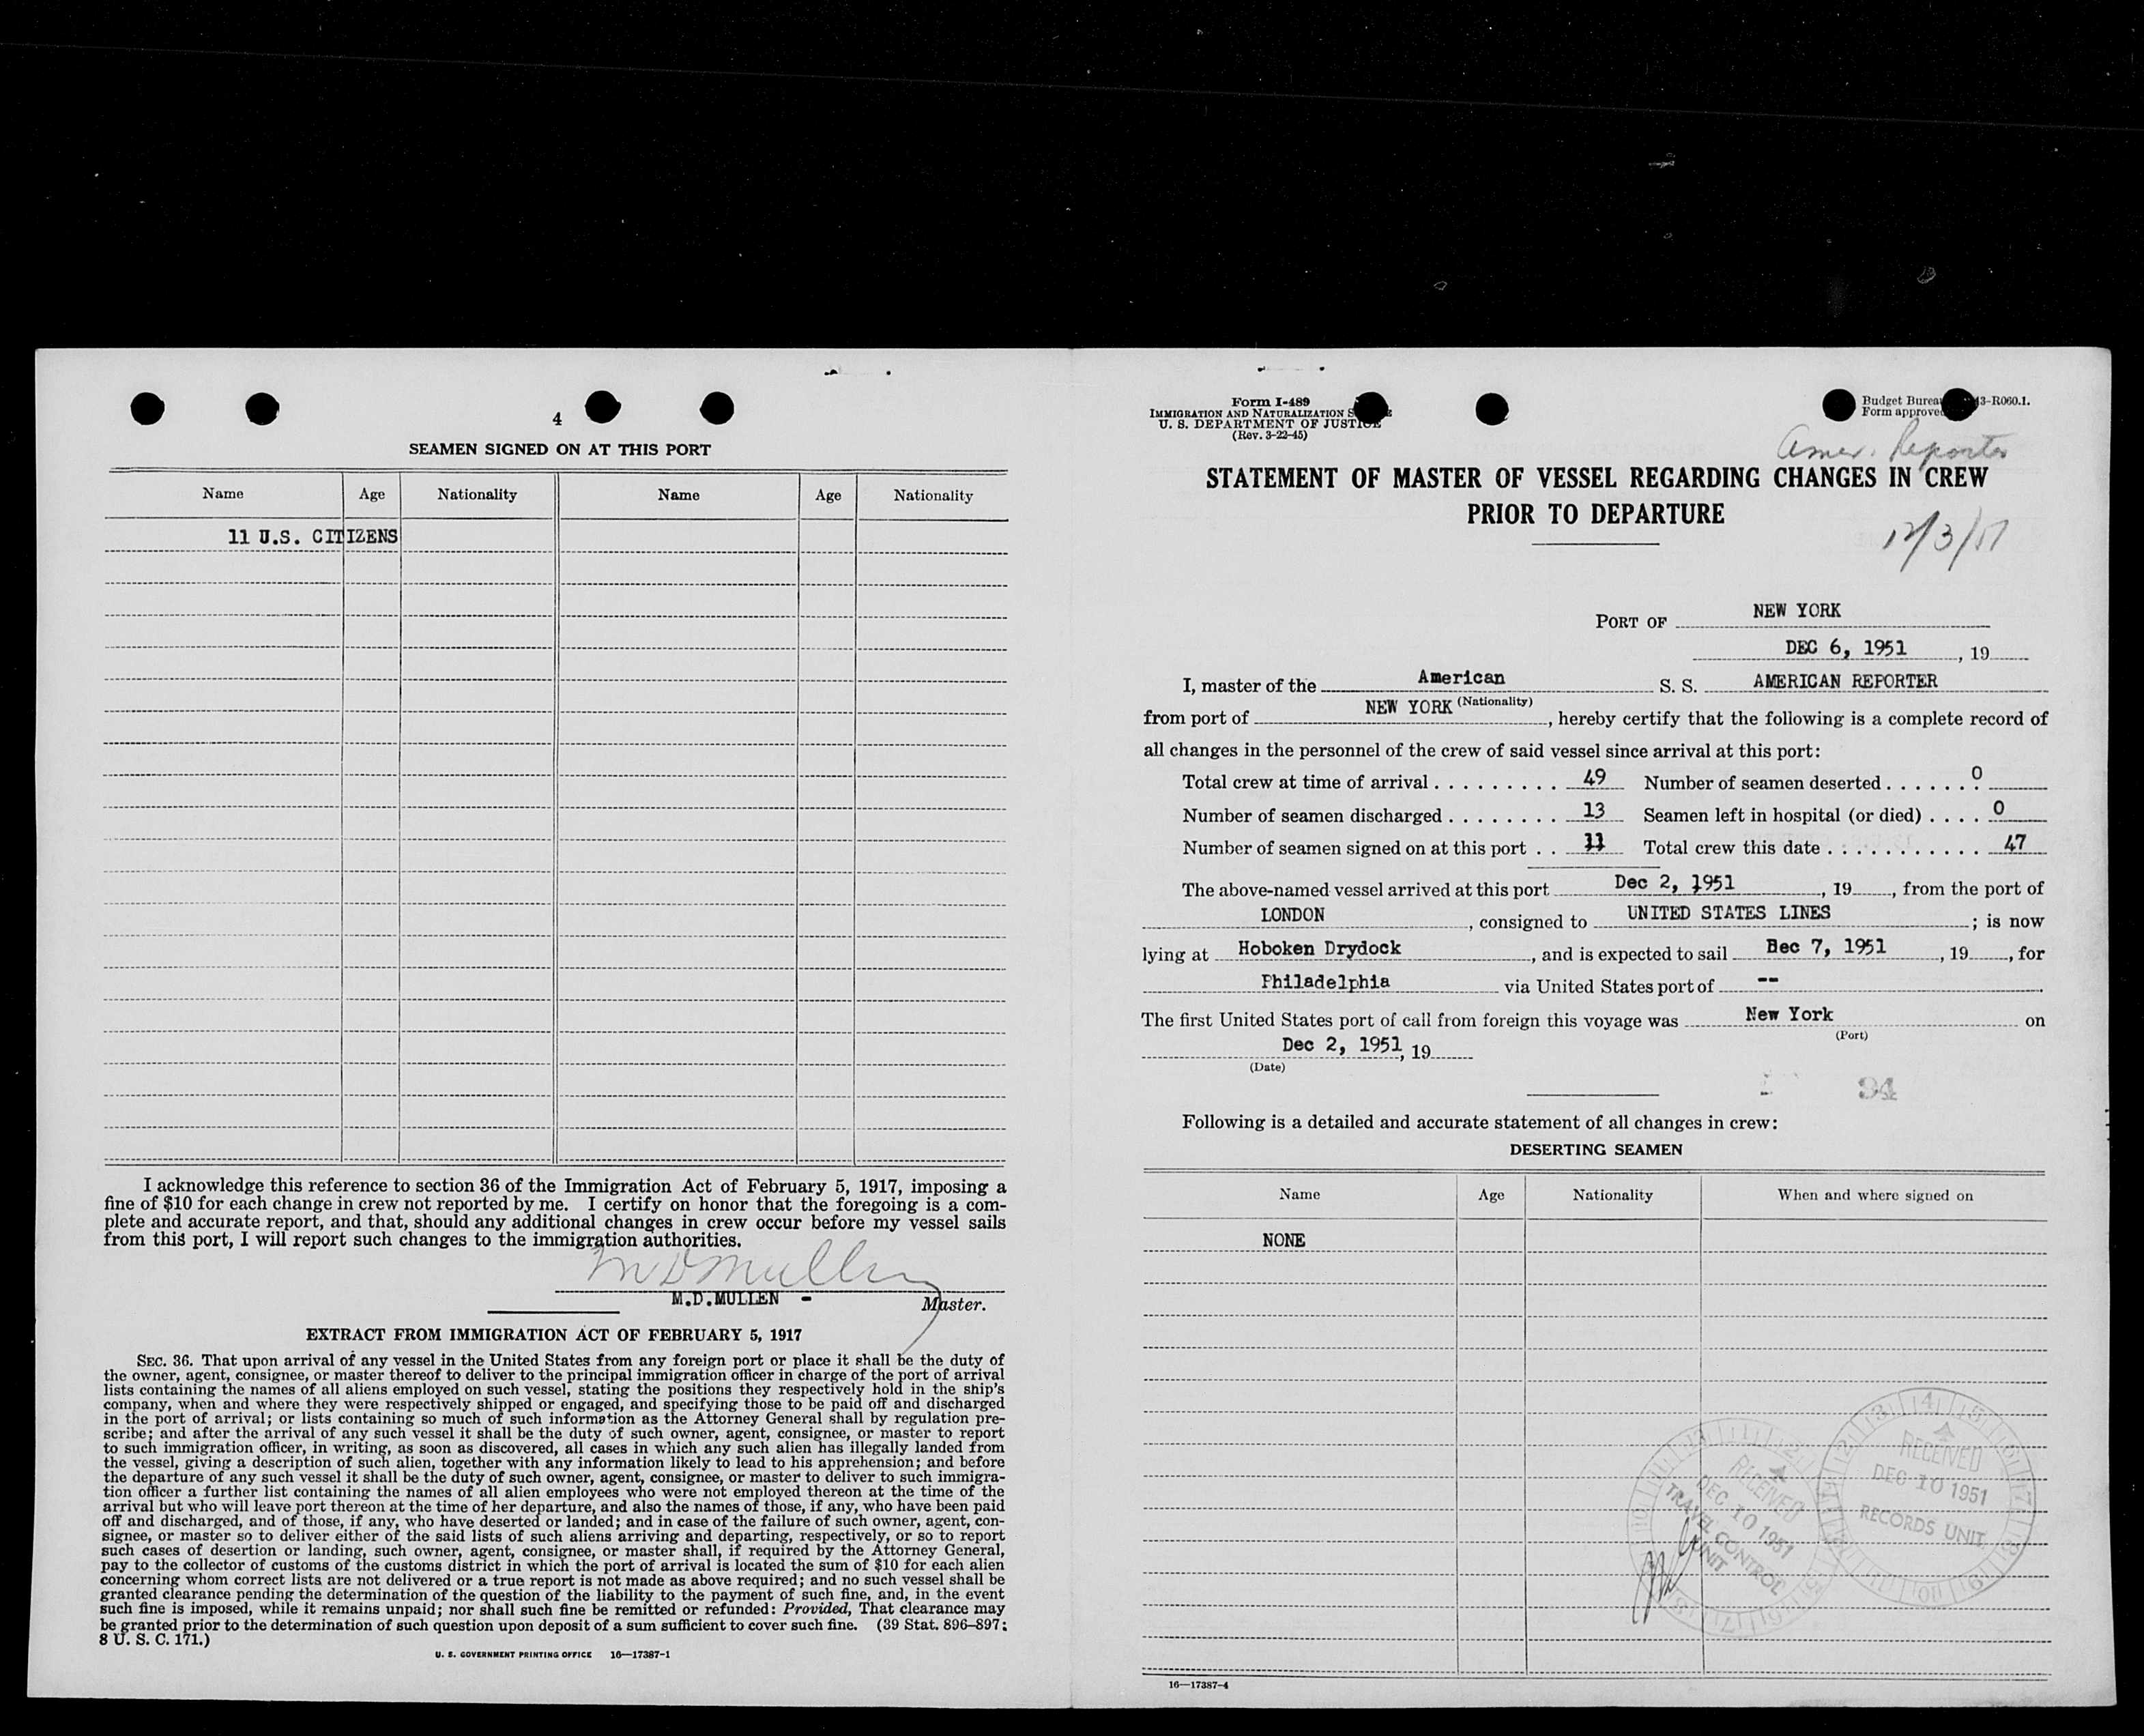 4
SEAMEN SIGNED ON AT THIS PORT
Name Age Nationality Name Age Nationality
11 U.S. CITIZENS
I acknowledge this reference to section 36 of the Immigration Act of February 5, 1917, imposing a
fine of $10 for each change in crew not reported by me. I certify on honor that the foregoing is a com-
plete and accurate report, and that, should any additional changes in crew occur before my vessel sails
from this port, I will report such changes to the immigration authorities.
M D Mullen
M.D.MULLEN -
Master.
EXTRACT FROM IMMIGRATION ACT OF FEBRUARY 5, 1917
SEC. 36. That upon arrival of any vessel in the United States from any foreign port or place it shall be the duty of
the owner, agent, consignee, or master thereof to deliver to the principal immigration officer in charge of the port of arrival
lists containing the names of all aliens employed on such vessel, stating the positions they respectively hold in the ship's
company, when and where they were respectively shipped or engaged, and specifying those to be paid off and discharged
in the port of arrival; or lists containing so much of such information as the Attorney General shall by regulation pre-
scribe; and after the arrival of any such vessel it shall be the duty of such owner, agent, consignee, or master to report
to such immigration officer, in writing, as soon as discovered, all cases in which any such alien has illegally landed from
the vessel, giving a description of such alien, together with any information likely to lead to his apprehension; and before
the departure of any such vessel it shall be the duty of such owner, agent, consignee, or master to deliver to such immigra-
tion officer a further list containing the names of all alien employees who were not employed thereon at the time of the
arrival but who will leave port thereon at the time of her departure, and also the names of those, if any, who have been paid
off and discharged, and of those, if any, who have deserted or landed; and in case of the failure of such owner, agent, con-
signee, or master so to deliver either of the said lists of such aliens arriving and departing, respectively, or so to report
such cases of desertion or landing, such owner, agent, consignee, or master shall, if required by the Attorney General,
pay to the collector of customs of the customs district in which the port of arrival is located the sum of $10 for each alien
concerning whom correct lists are not delivered or a true report is not made as above required; and no such vessel shall be
granted clearance pending the determination of the question of the liability to the payment of such fine, and, in the event
such fine is imposed, while it remains unpaid; nor shall such fine be remitted or refunded: Provided, That clearance may
be granted prior to the determination of such question upon deposit of a sum sufficient to cover such fine. (39 Stat. 896–897;
8 U. S. C. 171.)
U. S. GOVERNMENT PRINTING OFFICE 16—17387-1
Form I-489
IMMIGRATION AND NATURALIZATION
U. S. DEPARTMENT OF JUSTICE
(Rev. 3-22-45)
Budget Bureau 43-R060.1.
Form approved
Amer. Reporter
STATEMENT OF MASTER OF VESSEL REGARDING CHANGES IN CREW
PRIOR TO DEPARTURE
12/3/51
PORT OF NEW YORK
DEC 6, 1951, 19
I, master of the American S. S. AMERICAN REPORTER
(Nationality)
from port of NEW YORK, hereby certify that the following is a complete record of
all changes in the personnel of the crew of said vessel since arrival at this port:
Total crew at time of arrival . . . . . . . . . 49 Number of seamen deserted . . . . . . . 0
Number of seamen discharged . . . . . . . . 13 Seamen left in hospital (or died) . . . . 0
Number of seamen signed on at this port . . 11 Total crew this date . . . . . . . . . . . 47
The above-named vessel arrived at this port Dec 2, 1951, 19, from the port of
LONDON, consigned to UNITED STATES LINES; is now
lying at Hoboken Drydock, and is expected to sail Dec 7, 1951, 19, for
Philadelphia via United States port of --.
The first United States port of call from foreign this voyage was New York on
(Port)
Dec 2, 1951, 19
(Date)
34
Following is a detailed and accurate statement of all changes in crew:
DESERTING SEAMEN
Name Age Nationality When and where signed on
NONE
RECEIVED
DEC 10 1951
TRAVEL CONTROL
UNIT
RECEIVED
DEC 10 1951
RECORDS UNIT
16—17387-4